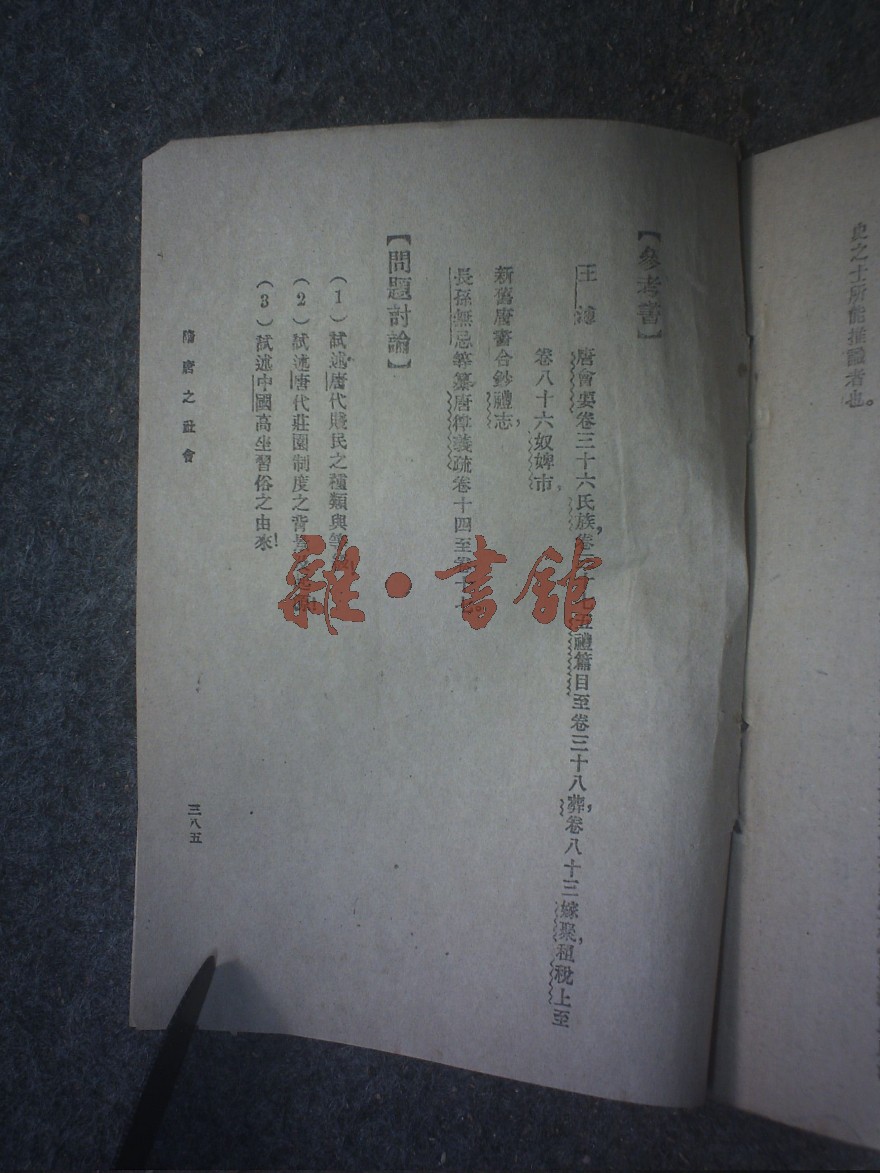 史之士所能推識者也。
【參考書】
王溥 唐會要卷三十六氏族,卷三十五禮篇目至卷三十八葬,卷八十三嫁聚,租稅上至
卷八十六奴婢市。
新舊唐書合鈔禮志,
長孫無忌等纂唐律義疏卷十四至
【問題討論】
(1)試述唐代賤民之種類與等
(2)試述唐代莊園制度之背景
(3)試述中國高坐習俗之由來!
隋唐之社會
三八五
雜·書館